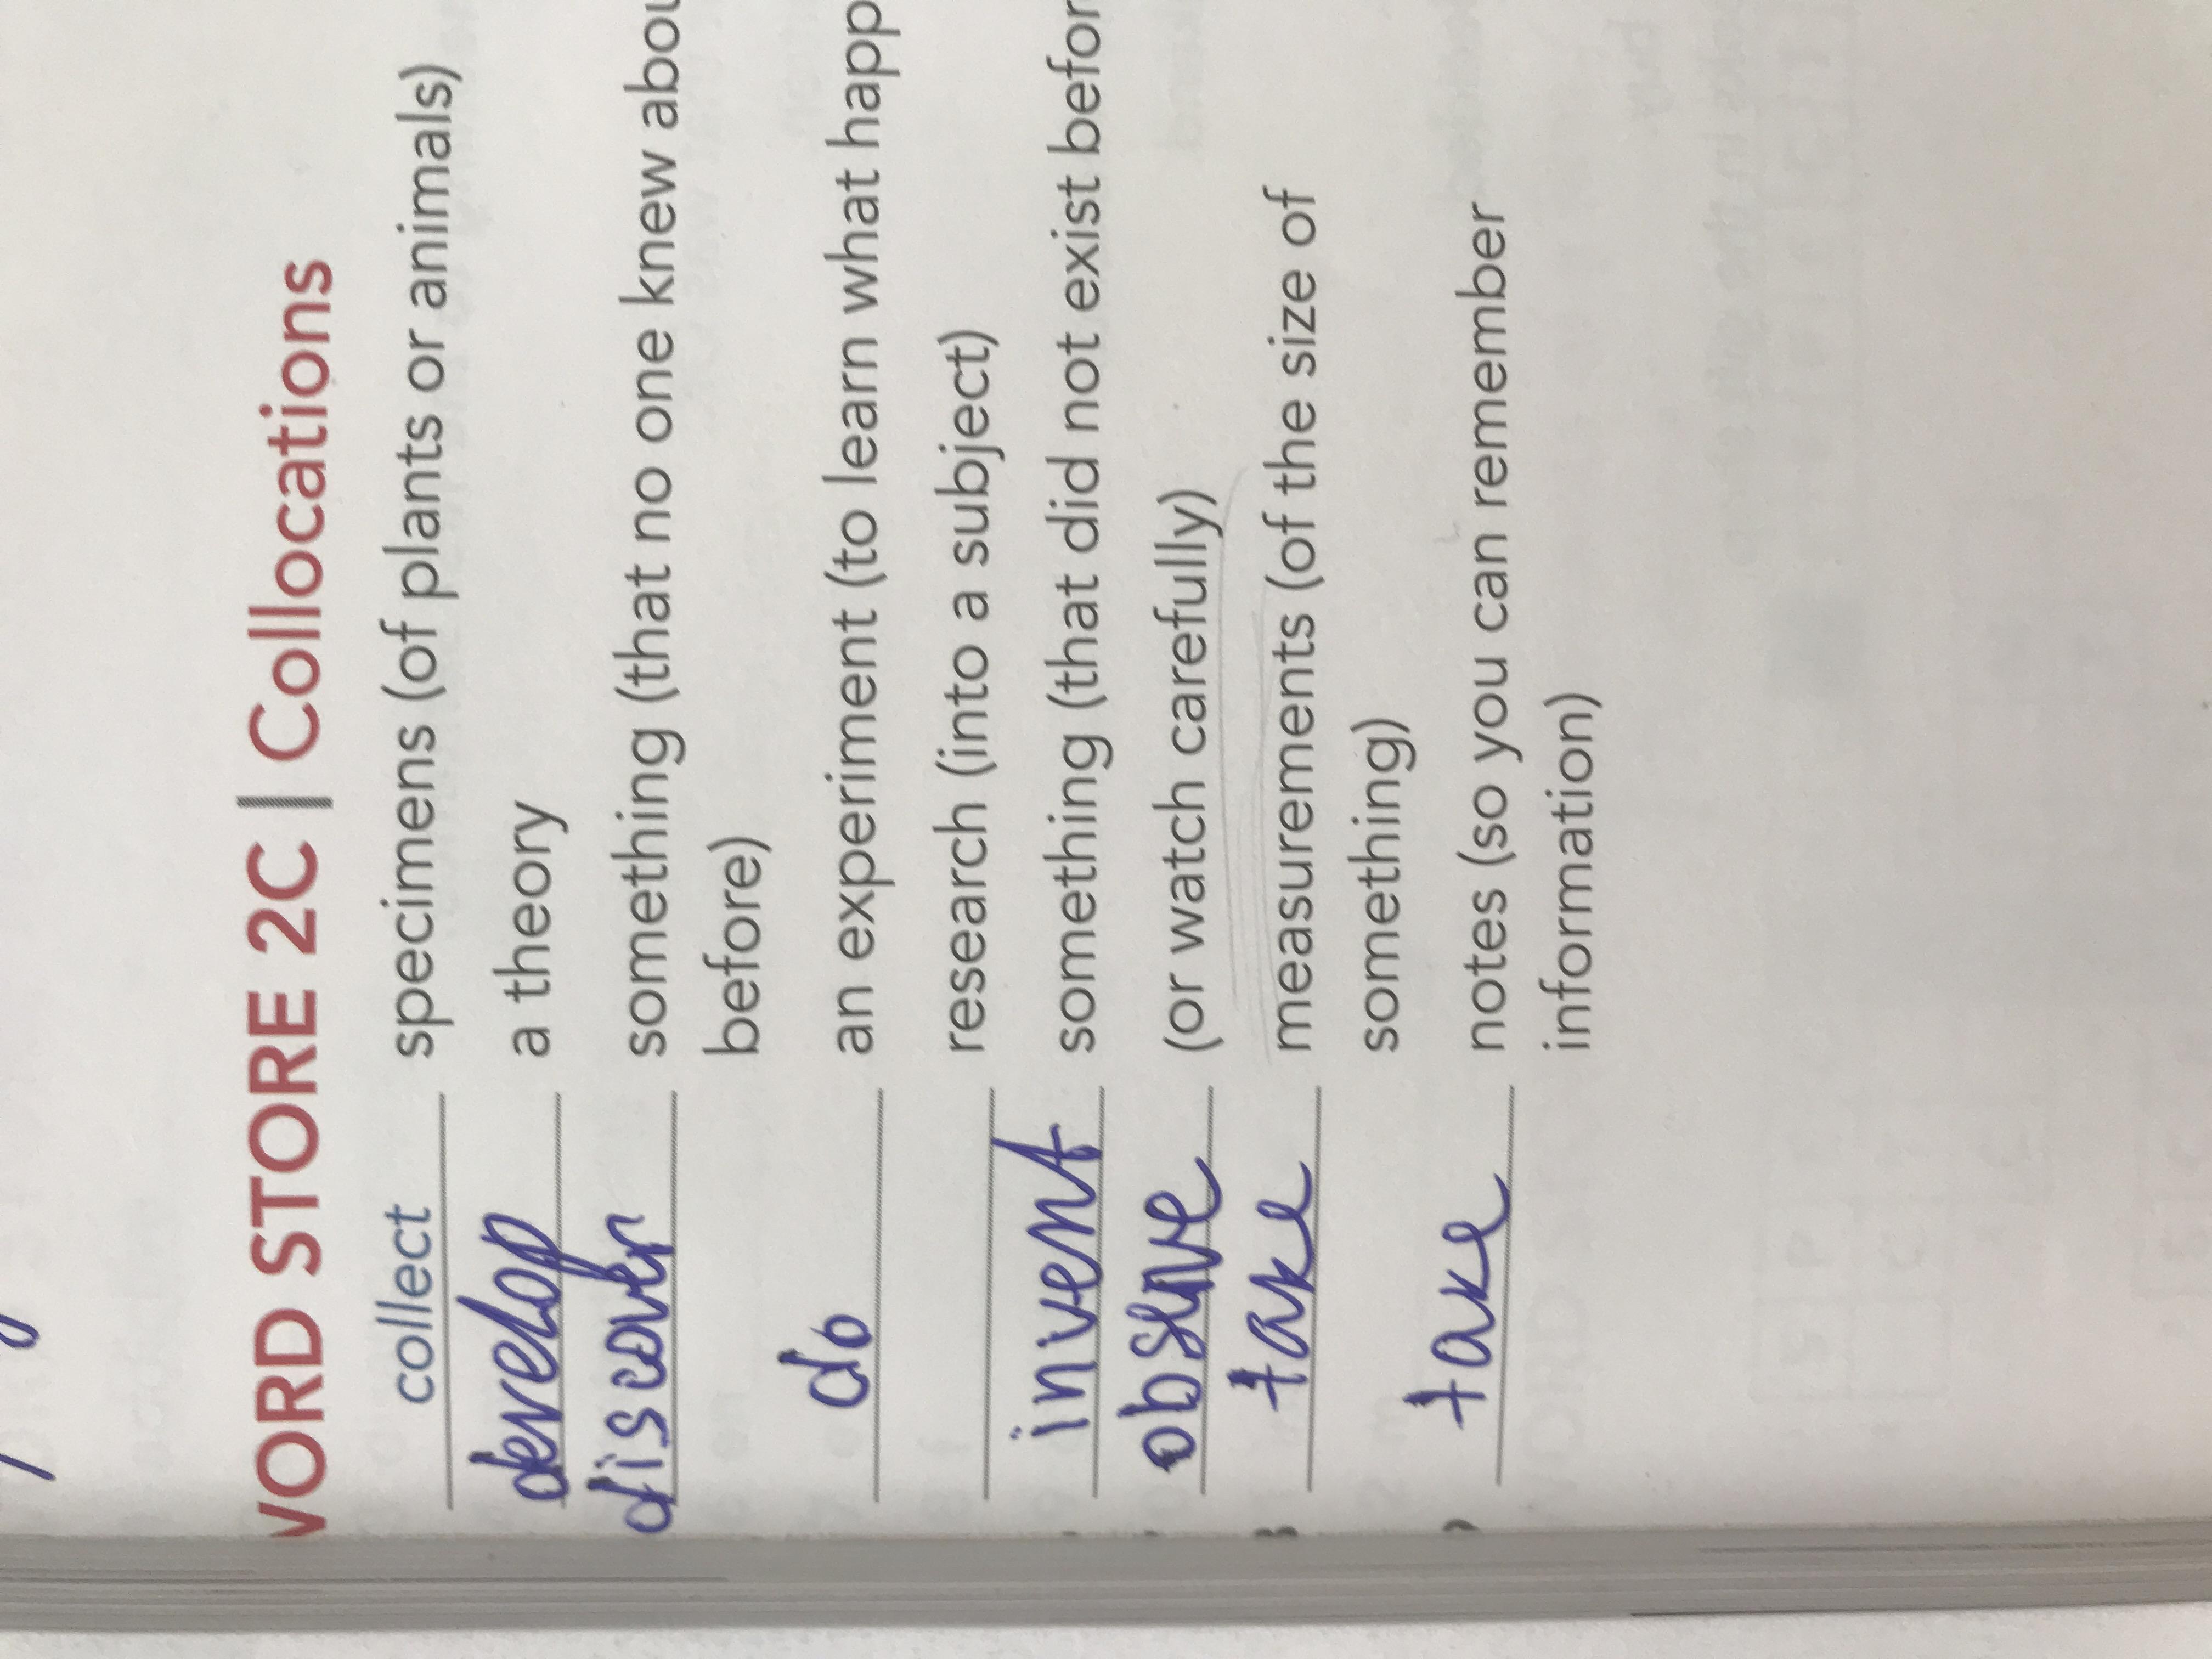 WORD STORE 2C | Collocations
collect specimens (of plants or animals)
develop a theory
discover something (that no one knew
before)
do an experiment (to learn what
research (into a subject)
invent something (that did not exist
observe (or watch carefully)
take measurements (of the size of
something)
take notes (so you can remember
information)